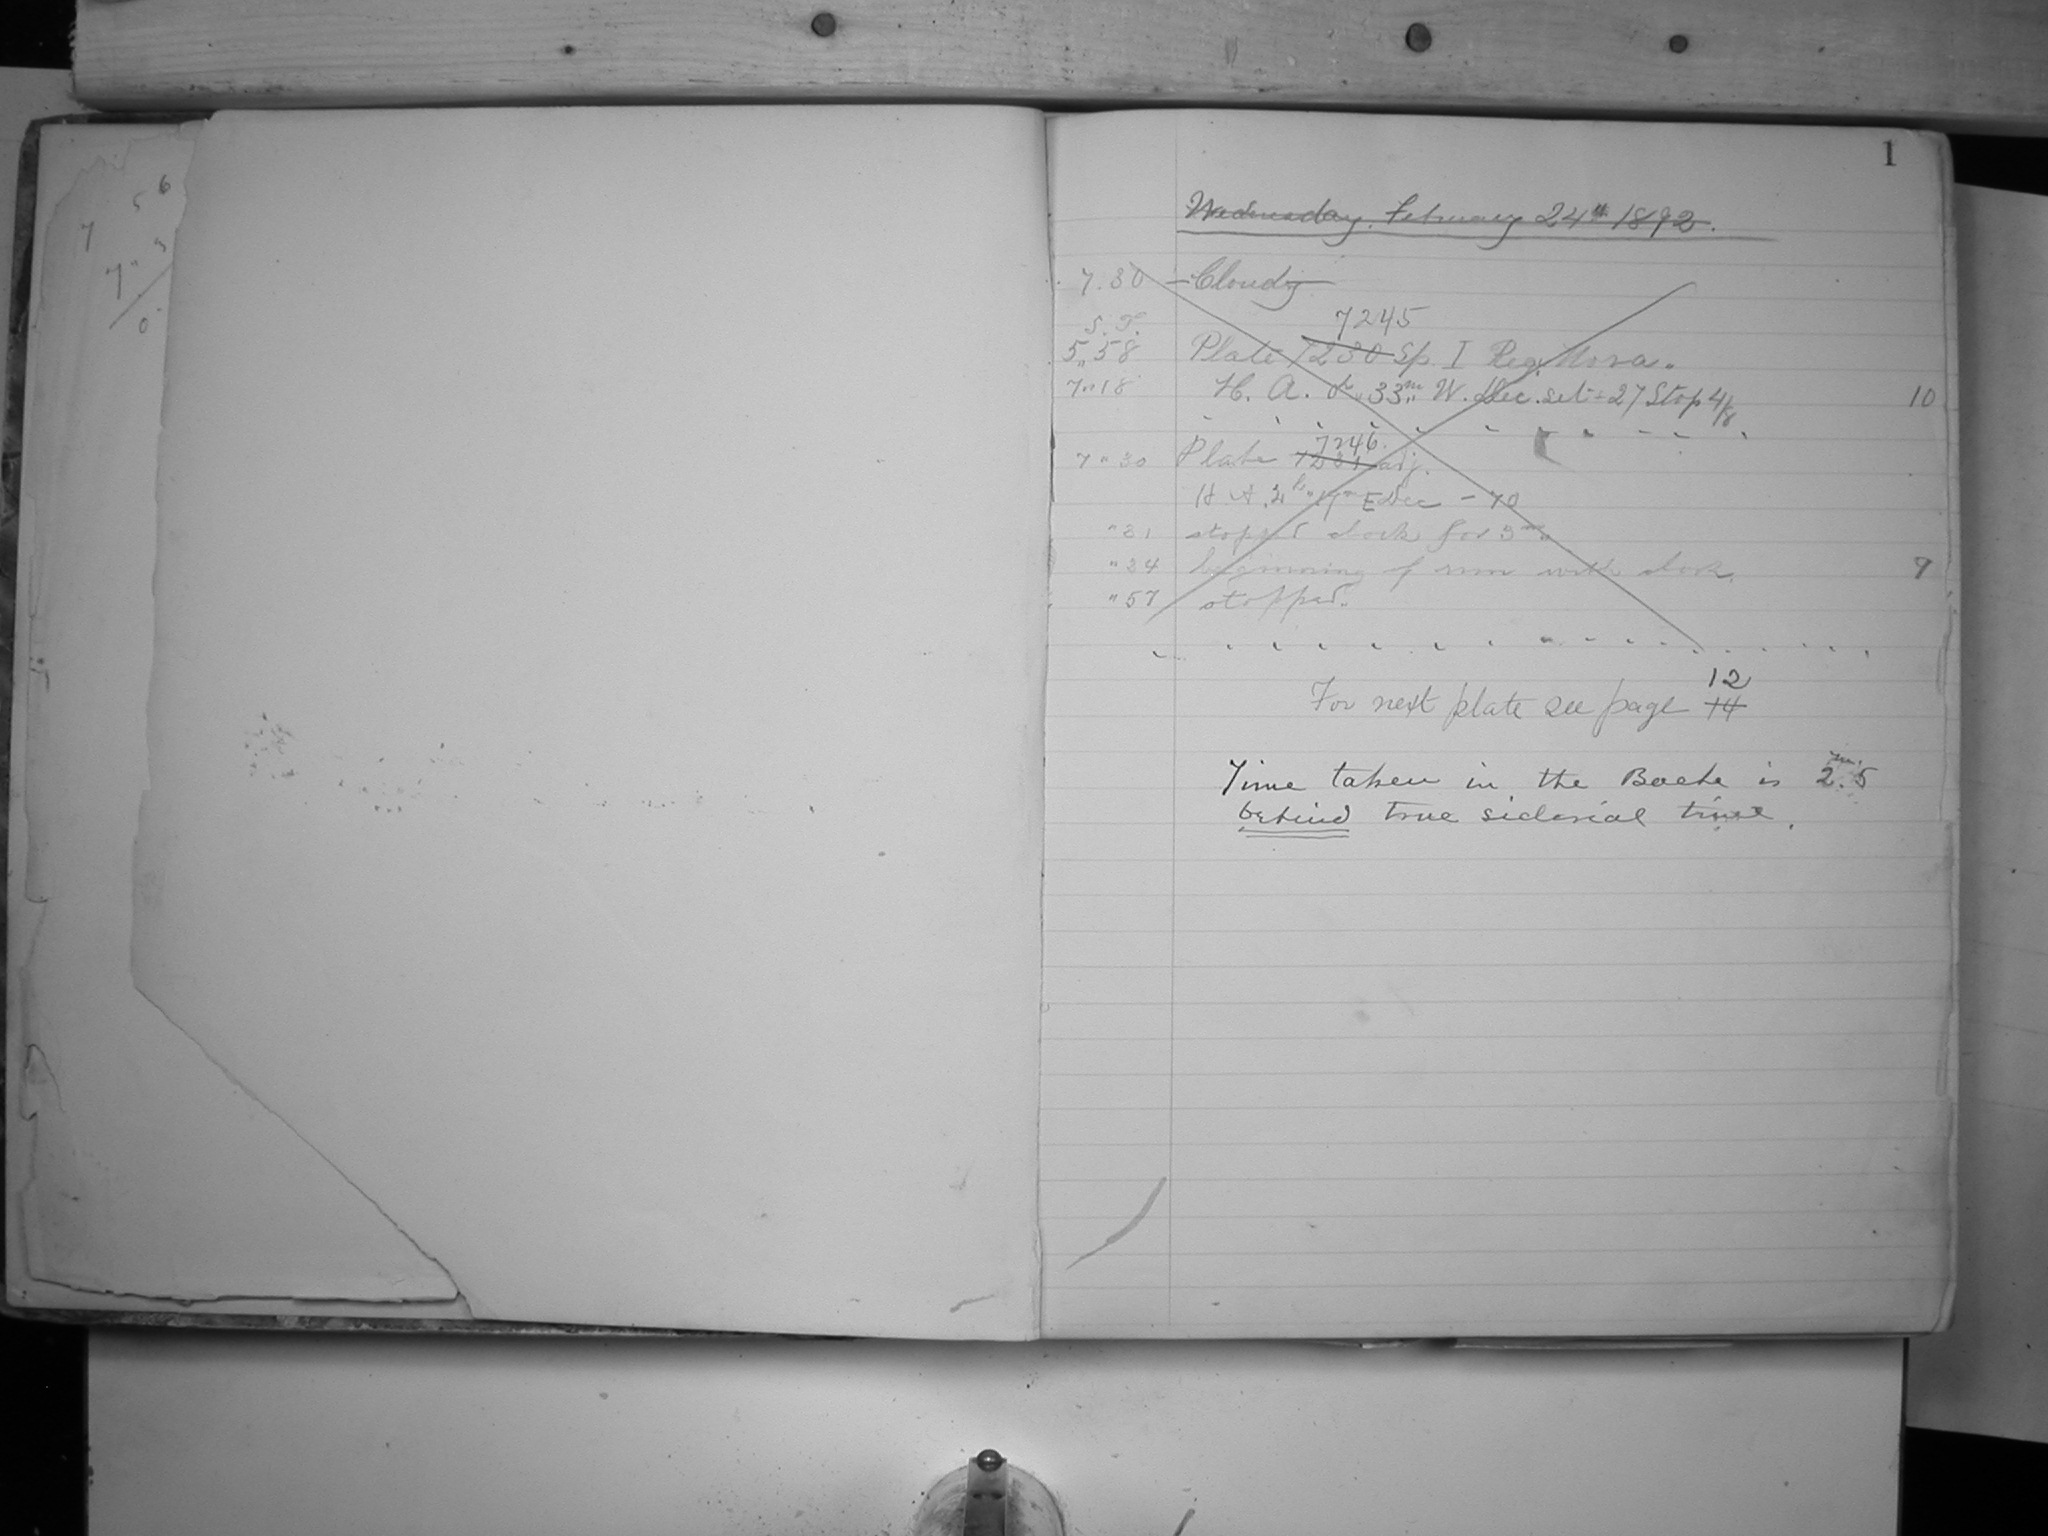 7 5 6
7" 3
0
1
Wednesday. February 24th 1892.
7.30 - Cloudy
S. T. 7245
5,,58 Plate 7230 Sp. I Reg. Nova.
7"18 H. A. 33m W. Dec. set + 27 Stop 4/8 10
7246.
7"30 Plate 7231 adj.
H. A. 2h E Dec - 70
"31 stopped clock for 3m.
"34 beginning of run with clock. 9
"57 stopped.
12
For next plate see page 14
Time taken in the Book is 2m.5
behind true siderial time.